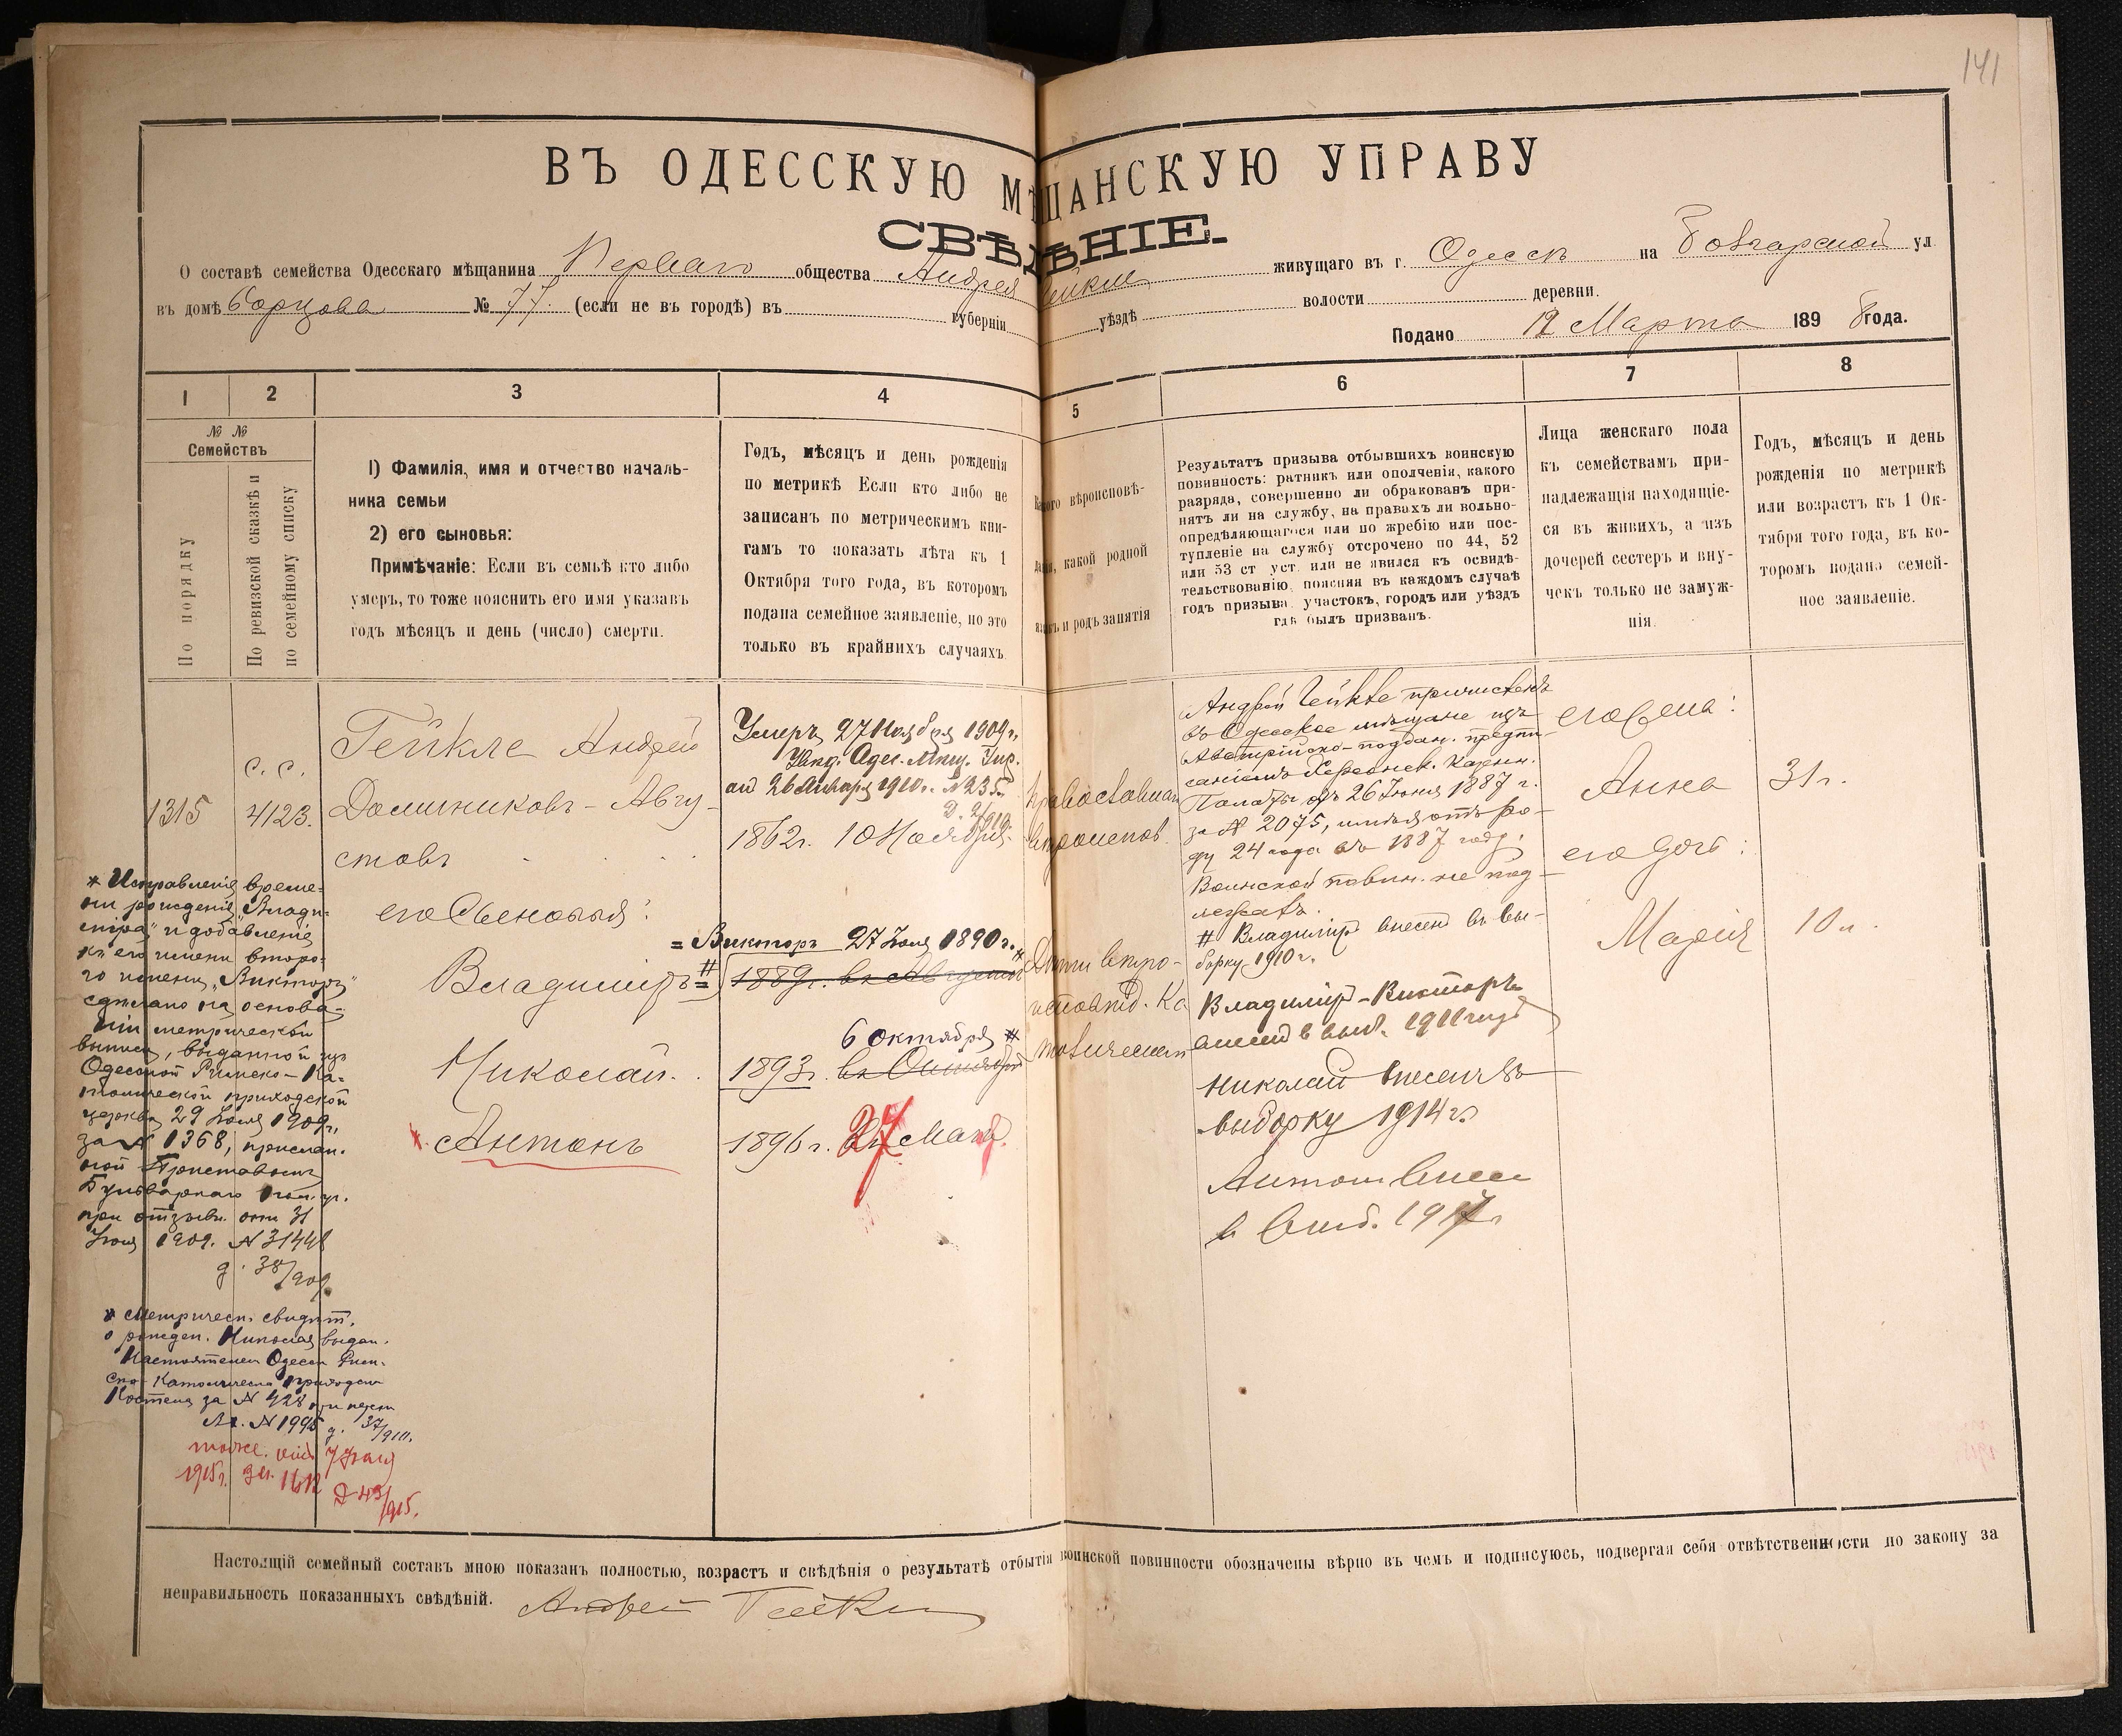 141
ВЪ ОДЕССКУЮ МѢЩАНСКУЮ УПРАВУ
СВѢДѢНІЕ.
О составѣ семейства Одесскаго мѣщанина Перваго общества Андрея Гейкле живущаго въ г. Одессѣ на Болгарской ул
въ домѣ Борцова № 77. (если не въ городѣ) въ губерніи уѣздѣ волости деревни.
Подано 12 Марта 1898 года.
1 2 3 4 5 6 7 8
№ №
Семействъ
По порядку
По ревизской сказкѣ и
по семейному списку
1) Фамилія, имя и отчество началь-
ника семьи
2) его сыновья:
Примѣчаніе: Если въ семьѣ кто либо
умеръ, то тоже пояснить его имя указавъ
годъ мѣсяцъ и день (число) смерти.
Годъ, мѣсяцъ и день рожденія
по метрикѣ Если кто либо не
записанъ по метрическимъ кни-
гамъ то показать лѣта къ 1
Октября того года, въ которомъ
подана семейное заявленіе, но это
только въ крайнихъ случаяхъ.
вѣроисповѣ-
какой родной
и родъ занятія
Результатъ призыва отбывшихъ воинскую
повинность: ратникъ или ополченія, какого
разряда, совершенно ли обракованъ при-
нятъ ли на службу, на правахъ ли вольно-
опредѣляющагося или по жребію или пос-
тупленіе на службу отсрочено по 44, 52
или 53 ст уст. или не явился къ освидѣ-
тельствованію, поясняя въ каждомъ случаѣ
годъ призыва, участокъ, городъ или уѣздъ
гдѣ былъ призванъ.
Лица женскаго пола
къ семействамъ при-
надлежащія находящіе-
ся въ живихъ, а изъ
дочерей сестеръ и вну-
чекъ только не замуж-
нія.
Годъ, мѣсяцъ и день
рожденія по метрикѣ
или возрастъ къ 1 Ок-
тября того года, въ ко-
торомъ подано семей-
ное заявленіе.
1315
с. с.
4123.
Гейкле Андрей
Доминиковъ-Авгу-
стовъ
его Сыновья:
Владиміръ #
Николай.
Антонъ
Умеръ 27 Ноября 1909 г.
Увѣд. Одес. Мѣщ. Упр.
от 26 Января 1910 г. № 235.
1862 г. 10 Ноября.
= Викторъ 27 Іюля 1890 г. *
1889 г. въ Августѣ
6 октября *
1893 г. въ Октябрѣ
1896 г. 27 Мая
Православнаго
вѣроиспов.
Дѣти вѣро-
исповѣд. Ка
толическаго
Андрей Гейкле причисленъ
въ Одесскіе мѣщане изъ
Австрійско-поддан. предпи-
саніемъ Херсонск. Казен.
Палаты отъ 26 Іюня 1887 г.
за № 2075, имѣя отъ ро-
ду 24 года въ 1887 году.
Воинской повин. не под-
лежатъ.
# Владиміръ внесенъ въ вы-
борку 1910 г.
Владиміръ-Викторъ
внесенъ в выб. 1911 году
Николай внесенъ въ
выборку 1914 г.
Антонъ внес
в выб. 1917 г
его жена:
Анна
31 г.
его дочь:
Марія
10 л.
* Исправленіе време-
ни рожденія „Влади-
міра" и добавленіе
къ его имени второ-
го имени „Викторъ"
сдѣлано на основа-
ніи метрической
выписи, выданной изъ
Одесской Римско-Ка-
толической приходской
церкви 29 Іюля 1909 г.
за № 1368, прислан.
ной Приставомъ
Бульварнаго пол. уч.
при отзывѣ отъ 31
Іюля 1909. № 31448
д. 38/909
* Метрическ. свидѣт.
о рожден. Николая выдан.
Настоятелем Одесск Рим-
ско-Католическа приходск
Костела за № 428
№ 1995 д. 37/911.
7 Мая
1915 г. за № 1612
Д 49/915.
Настоящій семейный составъ мною показанъ полностью, возрастъ и свѣдѣнія о результатѣ отбытія воинской повинности обозначены вѣрно въ чемъ и подписуюсь, подвергая себя отвѣтственности по закону за
неправильность показанныхъ свѣдѣній. Андрей Гейкле